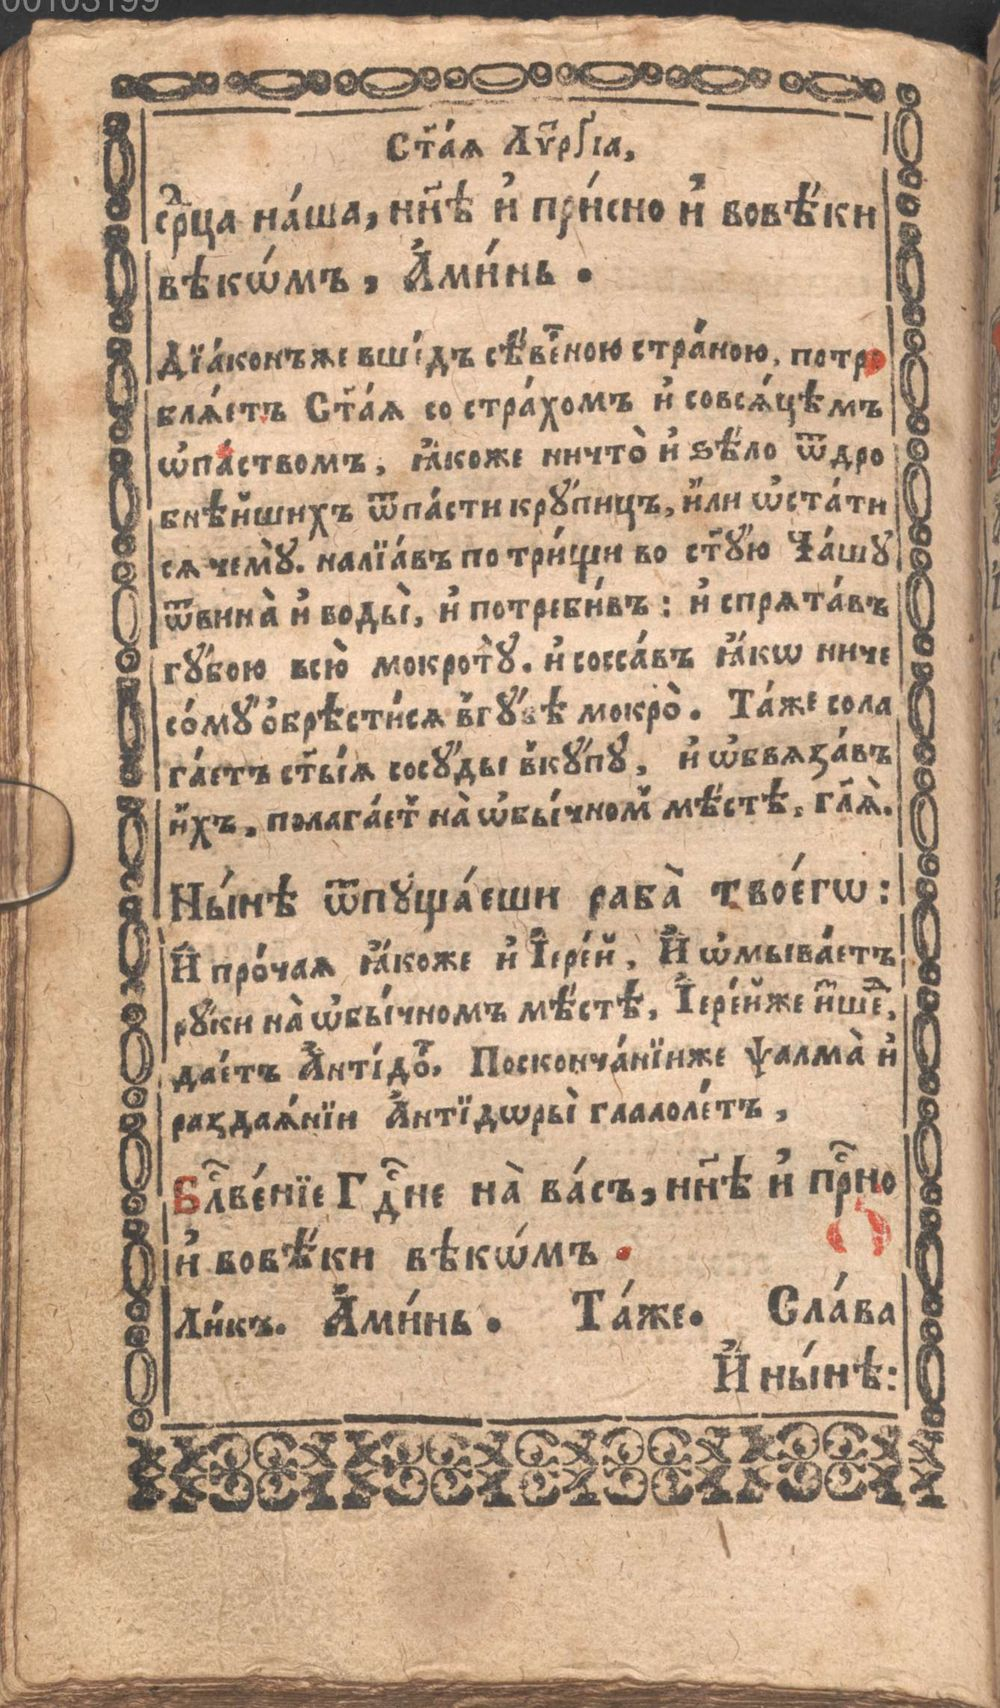 00103199
Ст҃а́ѧ Лѵ҃ргі́а,
ср҃ца на́ша, нн҃ѣ и҆ при́сно и҆ вовѣ́ки
вѣкѡ́мъ, А҆ми́нь.
Дїа́конъже вше́дъ сѣ́ве҃ною стра́ною, потре
блѧ́етъ Ст҃а́ѧ со стра́хомъ и҆ совсѧ́цѣмъ
ѡ҆па́ствомъ, ꙗ҆́коже ничто̀ и҆ ѕѣ́ло ѿдро
бнѣ́йшихъ ѿпа́сти крꙋ́пицъ, и҆́ли ѡ҆ста́ти
сѧ чемꙋ̀. налїа́въ по три́щи во ст҃ꙋ́ю Ча́шꙋ
ѿвина̀ и҆ воды̀, и҆ потреби́въ: и҆ спрѧта́въ
гꙋ́бою всю̀ мокротꙋ̀. и҆ сосса́въ ꙗ҆́кѡ ниче
со́мꙋ ѻ҆брѣсти́сѧ в̾гꙋ́бѣ мокро̀. Та́же сола
га́етъ ст҃ы́ѧ сосꙋ́ды в̾кꙋ́пꙋ, и҆ ѡ҆бвѧза́въ
и҆́хъ, полага́ет̾ на̀ ѡ҆бы́чном̾ мѣ́стѣ, гл҃ѧ̀.
Ны́нѣ ѿпꙋща́еши раба̀ твоегѡ̀:
И҆ про́чаѧ ꙗ҆́коже и҆ І҆ере́й. И҆ ѡ҆мыва́етъ
рꙋ́ки на̀ ѡ҆бы́чномъ мѣ́стѣ, І҆ере́йже и҆зше́д̾,
дае́тъ А҆нті́дѡ҃р. Посконча́нїиже ѱалма̀ и҆
раздаѧ́нїи А҆нтїдѡры̀ глаголе́тъ,
Бл҃ве́нїе Гдⷭ҇не на̀ ва́съ, нн҃ѣ и҆ прⷭ҇но
и҆ вовѣ́ки вѣкѡ́мъ.
Ли́къ. А҆ми́нь. Та́же. Сла́ва
И҆ ны́нѣ: